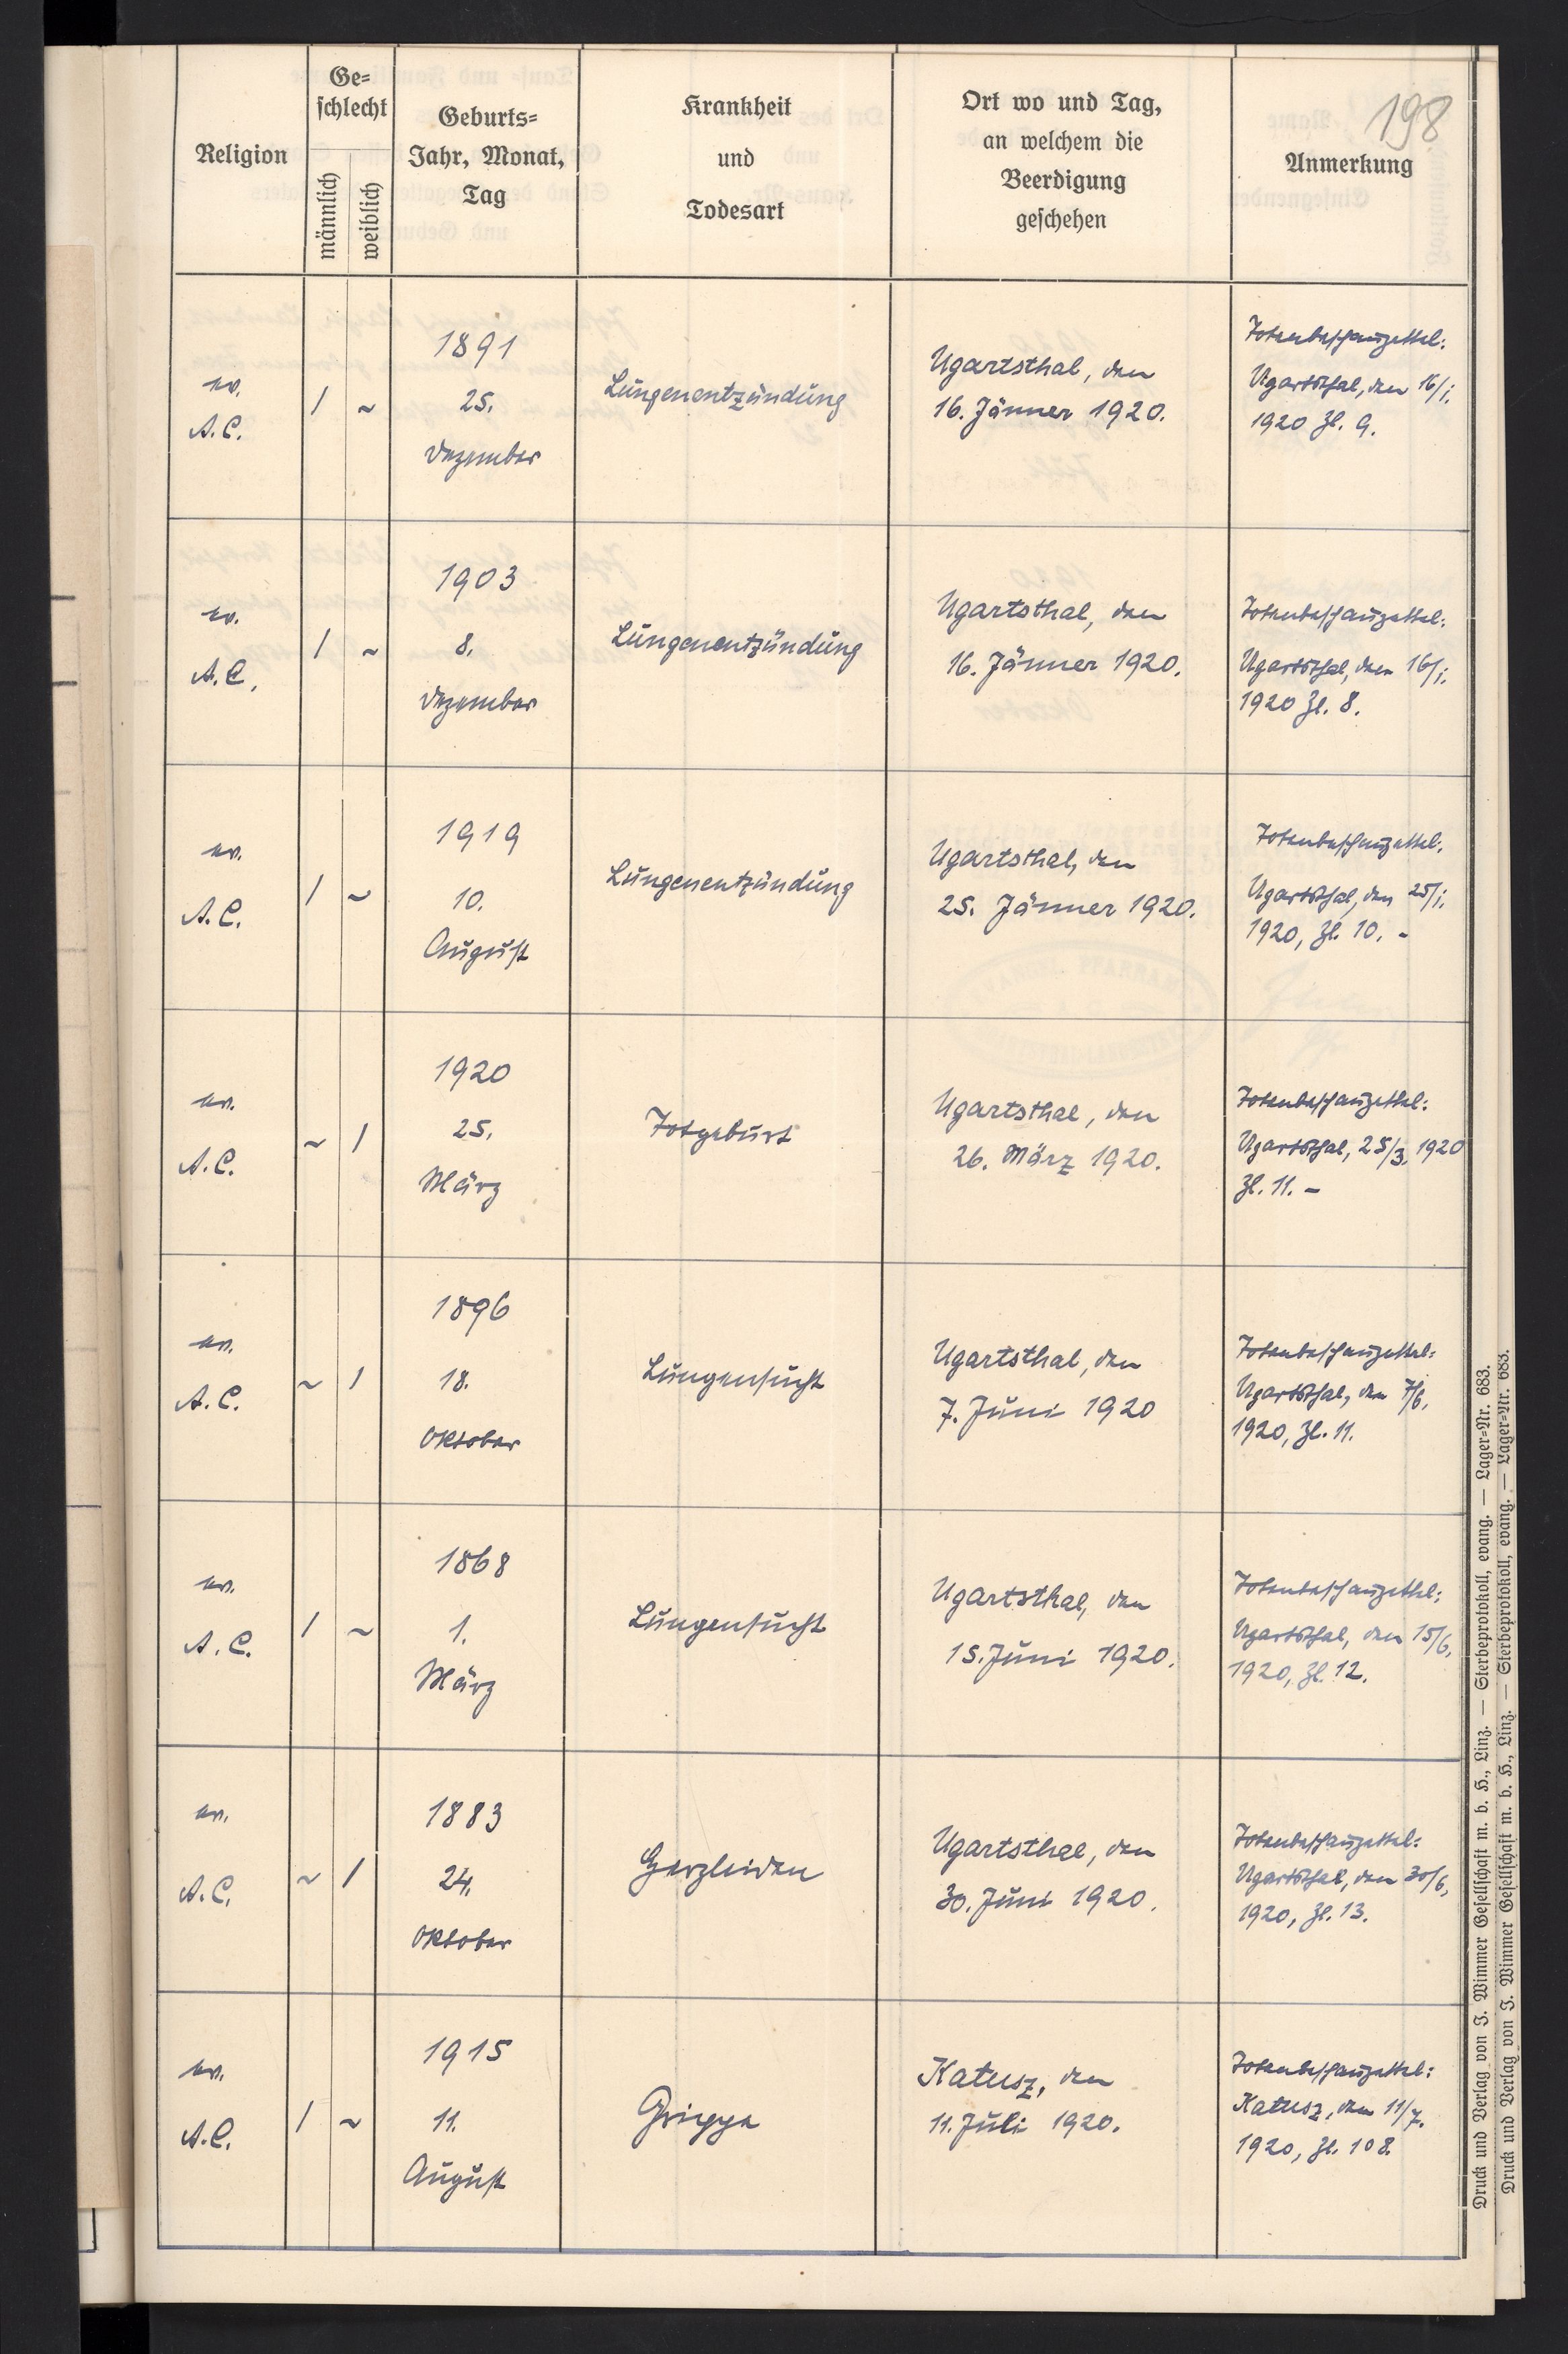 198
Religion
Ge=
schlecht
männlich
weiblich
Geburts=
Jahr, Monat,
Tag
Krankheit
und
Todesart
Ort wo und Tag,
an welchem die
Beerdigung
geschehen
Anmerkung
ev.
A.C.
/ ~
1891
25.
Dezember
Lungenentzündung
Ugartsthal, den
16. Jänner 1920.
Totenbeschauzettel:
Ugartsthal, den 16/1.
1920 Zl. 9.
ev.
A.C.
/ ~
1903
8.
Dezember
Lungenentzündung
Ugartsthal, den
16. Jänner 1920.
Totenbeschauzettel:
Ugartsthal, den 16/1.
1920 Zl. 8.
ev.
A.C.
/ ~
1919
10.
August
Lungenentzündung
Ugartsthal, den
25. Jänner 1920.
Totenbeschauzettel:
Ugartsthal, den 25/1.
1920, Zl. 10. -
ev.
A.C.
~ /
1920
25.
März
Totgeburt
Ugartsthal, den
26. März 1920.
Totenbeschauzettel:
Ugartsthal, 25/3. 1920
Zl. 11. -
ev.
A.C.
~ /
1896
18.
Oktober
Lungensucht
Ugartsthal, den
7. Juni 1920
Totenbeschauzettel:
Ugartsthal, den 7/6.
1920, Zl. 11.
ev.
A.C.
/ ~
1868
1.
März
Lungensucht
Ugartsthal, den
15. Juni 1920.
Totenbeschauzettel:
Ugartsthal, den 15/6.
1920, Zl. 12.
ev.
A.C.
~ /
1883
24.
Oktober
Herzleiden
Ugartsthal, den
30. Juni 1920.
Totenbeschauzettel:
Ugartsthal, den 30/6.
1920, Zl. 13.
ev.
A.C.
/ ~
1915
11.
August
Grippe
Katusz, den
11. Juli 1920.
Totenbeschauzettel:
Katusz, den 11/7.
1920, Zl. 108.
Druck und Verlag von J. Wimmer Gesellschaft m. b. H., Linz. — Sterbeprotokoll, evang. — Lager=Nr. 683.
Druck und Verlag von J. Wimmer Gesellschaft m. b. H., Linz. — Sterbeprotokoll, evang. — Lager=Nr. 683.